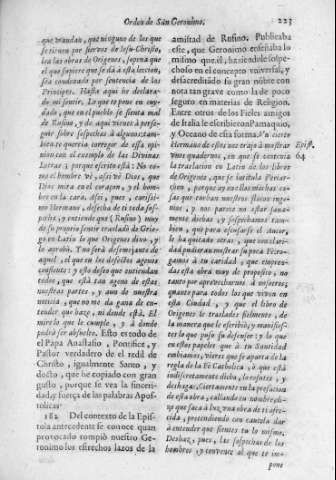 Orden de San Geronimo. 223
que mandan, que ninguno de los que
se tienen por siervos de Jesu-Christo,
lea las obras de Origenes, sopena que
el que supiere que se dà à esta leccion,
serà condenado por sentencia de los
Principes. Hasta aqui he declara-
do mi sentir. Lo que te pone en cuy-
dado, que en el pueblo se sienta mal
de Rufino, y de que vienen à perse-
guir sobre sospechas à algunos: tam-
bien te queria corregir de essa opi-
nion con el exemplo de las Divinas
Letras; porque escrito està: No co-
mo el hombre vè, assi vè Dios, que
Dios mira en el corazon, y el hom-
bre en la cara. Assi, pues, carissi-
mo Hermano, desecha de ti toda sos-
pecha, y entiende que (Rufino) muy
de su proprio sentir trasladò de Grie-
go en Latin lo que Origenes dixo, y
lo aprobò. Y no serà desemejante de
aquel, el que en los defectos agenos
consiente: y esto deseo que entiendan
todos, que està tan ageno de estas
nuestras partes, y aun de nuestra
noticia, que no me dà gana de en-
tender què haze, ni donde està. El
mire lo que le cumple, y à donde
podrà ser absuelto. Esto es todo de
el Papa Anastasio, Pontifice, y
Pastor verdadero de el redil de
Christo, igualmente Santo, y
docto, que he copiado con gran
gusto, porque se vea la sinceri-
dad, y fuerza de las palabras Apos-
tolicas.
182 Del contexto de la Epis-
tola antecedente se conoce quan
provocado rompiò nuestro Ge-
ronimo los estrechos lazos de la
amistad de Rufino. Publicaba
este, que Geronimo enseñaba lo
mismo que èl, haziendole sospe-
choso en el concepto universal, y
desacreditado su gran nombre con
nota tan grave como la de poco
seguro en materias de Religion.
Entre otros de los Fieles amigos
de Italia le escribieron Pamaquio,
y Oceano de esta forma. Un cierto
Hermano de estos nos traxo à mostrar Epist.
unos quadernos, en que se contenia 64
la traslacion en Latin de los libros
de Origenes, que se intitula Periar-
chon, porque ay en ellos muchas co-
sas que turban nuestros flacos inge-
nios, y nos parece no estar sana-
mente dichas; y sospechamos tam-
bien, que para escusarse el Autor,
le ha quitado otras, que con clari-
dad pudieran mostrar su poca Fè: ro-
gamos à tu caridad, que empren-
das esta obra muy de proposito, no
tanto por aprovecharnos à nosotros,
quanto para todos los que viven en
esta Ciudad, y que el libro de
Origenes le traslades fielmente, de
la manera que le escribiò, y manifies-
tes lo que puso su defensor; y lo que
en esse papeles que à tu Santidad
embiamos, vieres que se aparta de la
regla de la Fè Catholica, ò que està
indiscretamente dicho, lo refutes, y
deshagas. Ciertamente en la prefacion
de esta obra, callando tu nombre, di-
ze que saca à luz una obra de ti ofre-
cida, pretendiendo con cautela dar
à entender que sientes tu lo mismo.
Deshaz, pues, las sospechas de los
hombres, y convence al que te im-
pone